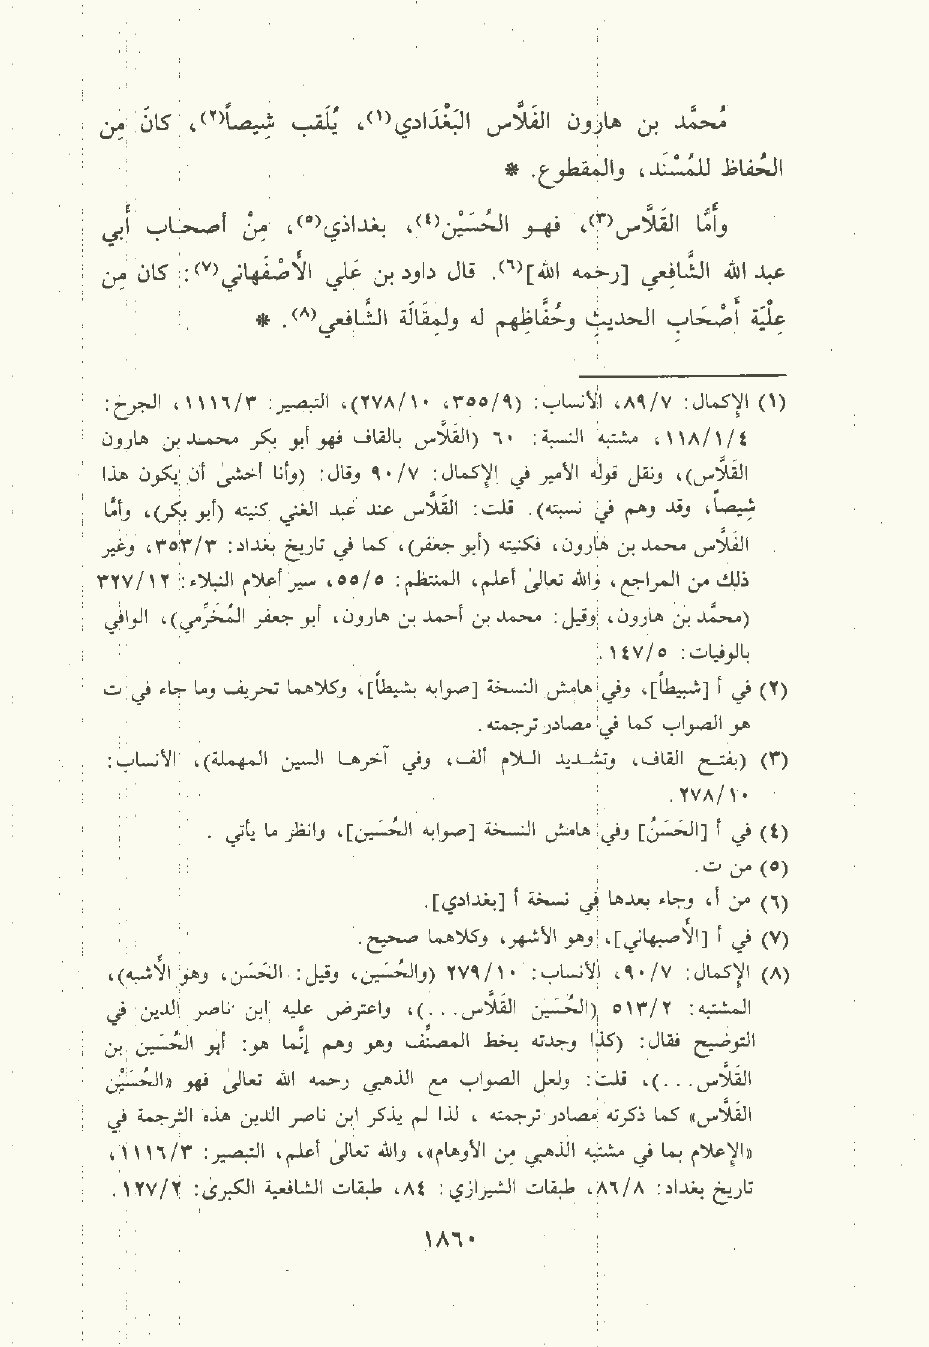 مُحمَّد بن هارون الفَلاَّس البَغْدَادي(١)، يُلَقب شِيصاً(٢)، كانَ مِن
الحُفاظ للمُسْنَد، والمقطوع. *
وأمَّا القَلاَّس(٣)، فهو الحُسَيْن(٤)، بغداذي(٥)، مِنْ أصحاب أبي
عبد الله الشَّافِعي [رحمه الله](٦). قال داود بن عَلي الأصْفَهاني(٧): كان مِن
عِلْيَة أصْحَابِ الحديثِ وحُفَّاظِهم له ولِمقَالَة الشَّافعي(٨). *
(١) الإكمال: ٨٩/٧، الأنساب: (٣٥٥/٩، ٢٧٨/١٠)، التبصير: ١١١٦/٣، الجرح:
١١٨/١/٤، مشتبه النسبة: ٦٠ (القَلاَّس بالقاف فهو أبو بكر محمد بن هارون
القَلاَّس)، ونقل قوله الأمير في الإكمال: ٩٠/٧ وقال: (وأنا أخشىٰ أن يكون هذا
شِيصاً، وقد وهم في نسبته). قلت: القَلاَّس عند عبد الغني كنيته (أبو بكر)، وأمَّا
الفَلاَّس محمد بن هارون، فكنيته (أبو جعفر)، كما في تاريخ بغداد: ٣٥٣/٣، وغير
ذلك من المراجع، والله تعالىٰ أعلم، المنتظم: ٥٥/٥، سير أعلام النبلاء: ٣٢٧/١٢
(محمَّد بن هارون، وقيل: محمد بن أحمد بن هارون، أبو جعفر المُخَرِّمي)، الوافي
بالوفيات: ١٤٧/٥.
(٢) في أ [شبيطاً]، وفي هامش النسخة [صوابه بشيطاً]، وكلاهما تحريف وما جاء في ت
هو الصواب كما في مصادر ترجمته.
(٣) (بفتح القاف، وتشديد اللام ألف، وفي آخرها السين المهملة)، الأنساب:
٢٧٨/١٠.
(٤) في أ [الحَسَنُ] وفي هامش النسخة [صوابه الحُسَين]، وانظر ما يأتي.
(٥) من ت.
(٦) من أ، وجاء بعدها في نسخة أ [بغدادي].
(٧) في أ [الأصبهاني]، وهو الأشهر، وكلاهما صحيح.
(٨) الإكمال: ٩٠/٧، الأنساب: ٢٧٩/١٠ (والحُسَين، وقيل: الحَسَن، وهو الأشبه)،
المشتبه: ٥١٣/٢ (الحُسَين القَلاَّس...)، واعترض عليه ابن ناصر الدين في
التوضيح فقال: (كذا وجدته بخط المصنِّف وهو وهم إنَّما هو: أبو الحُسَين بن
القَلاَّس...)، قلت: ولعل الصواب مع الذهبي رحمه الله تعالىٰ فهو «الحُسَيْن
القَلاَّس» كما ذكرته مصادر ترجمته، لذا لم يذكر ابن ناصر الدين هذه الترجمة في
«الإعلام بما في مشتبه الذهبي مِن الأوهام»، والله تعالىٰ أعلم، التبصير: ١١١٦/٣،
تاريخ بغداد: ٨٦/٨، طبقات الشيرازي: ٨٤، طبقات الشافعية الكبرىٰ: ١٢٧/٢.
١٨٦٠